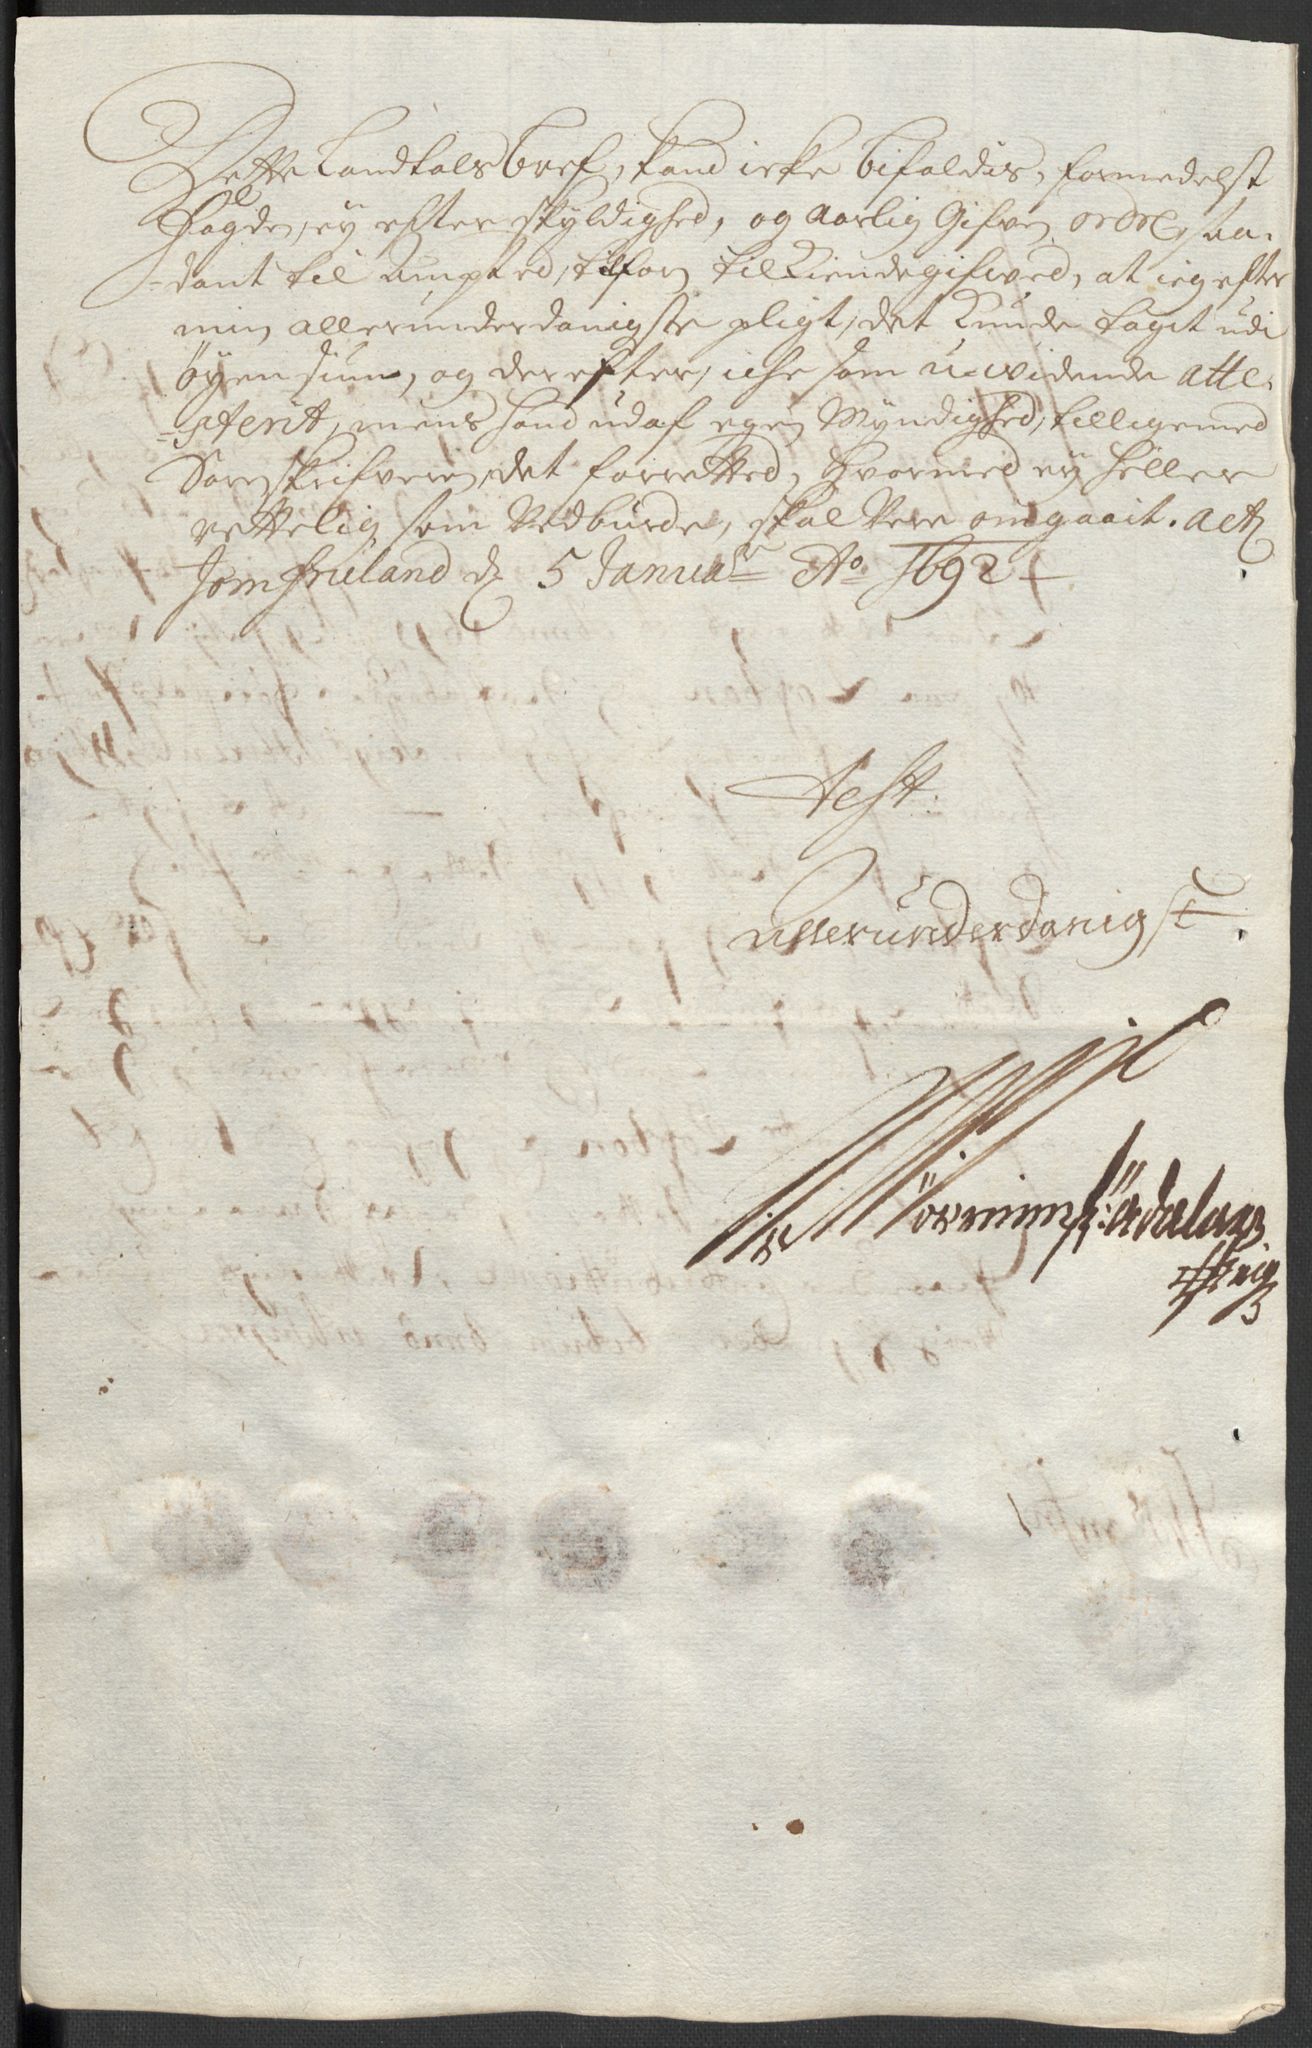 Dette Landkals bref, kand icke bifaldis, formedelst
fogden, ey efter skyldighed, og aarlig gifven ordre, saa-
dant til Ampted, tilforn tilkiendegifwed, at ieg efter
min allerunderdanigste pligt, det kunde taget udi
öyensiun, og derefter, iche som u-widende atte-
sterit, mens hand udaf egen Myndighed, tilligemed
Sorenskrifveren, det forretted, hvormed ey heller
rettelig som Vedburde, skal Vere omgaait. Act
Jomfruland d. 5 Januar Ao 1692
Test.
Allerunderdanigst